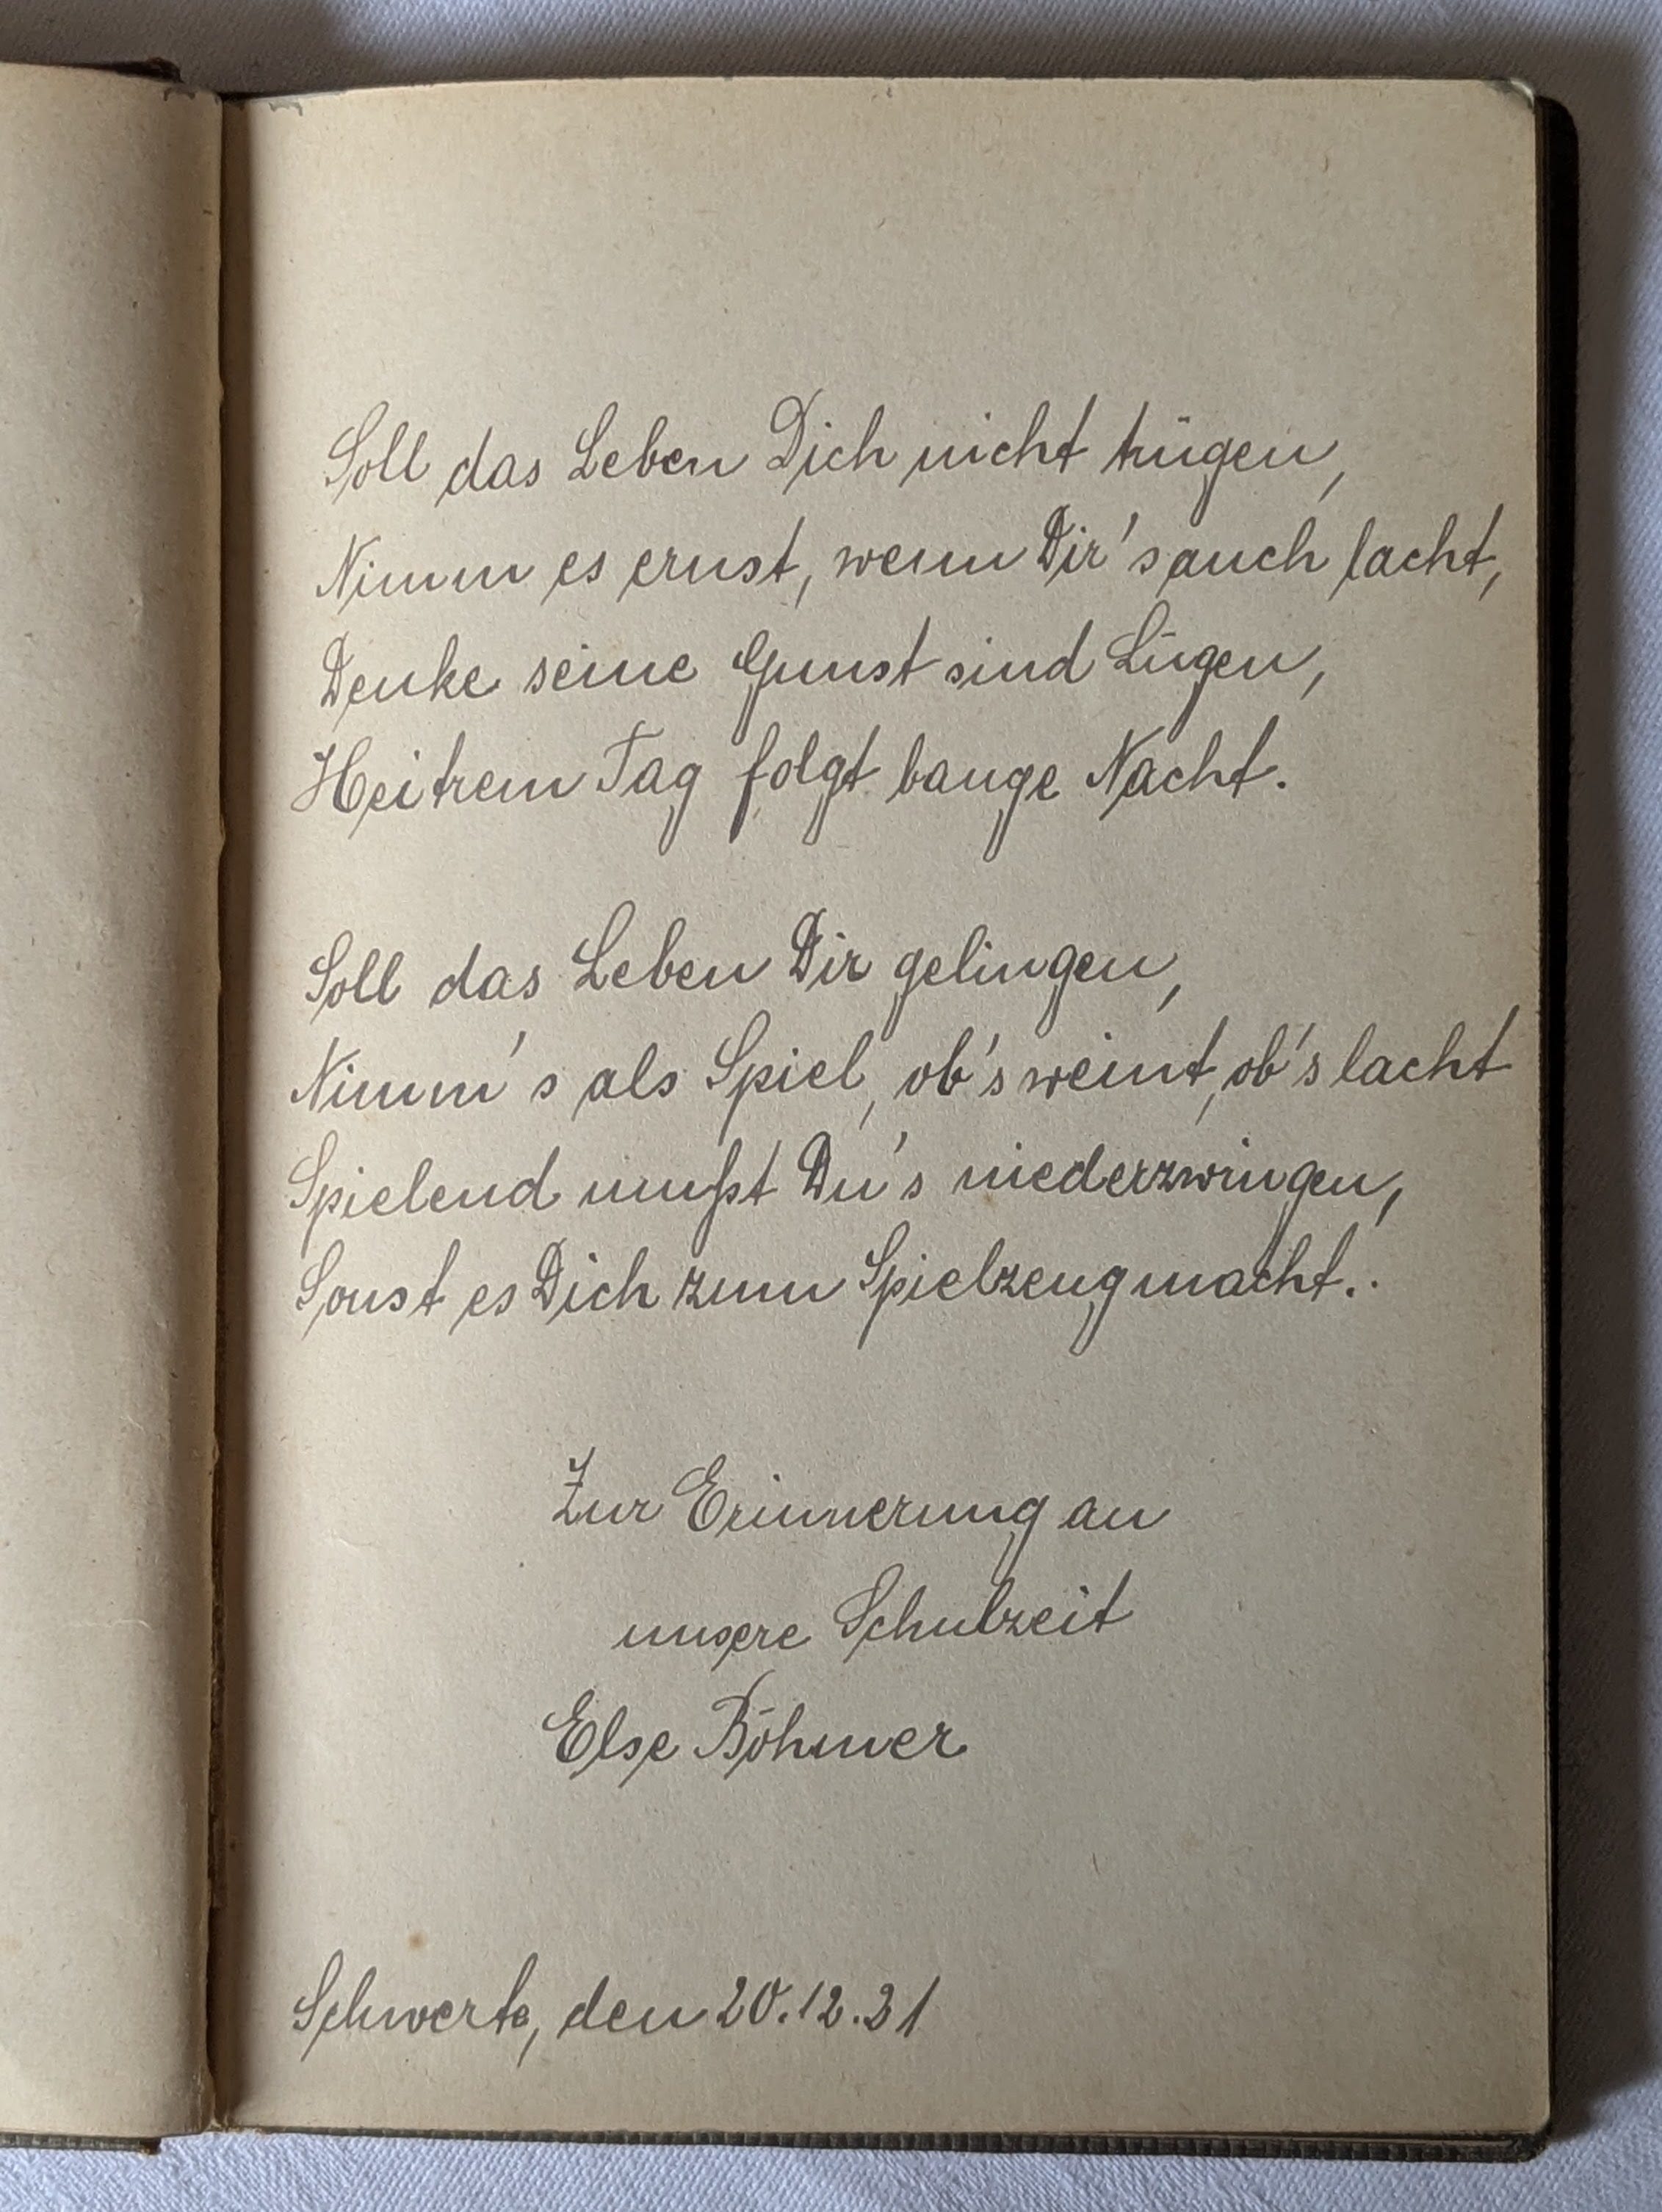 Soll das Leben Dich nicht trügen,
Nimm es ernst, wenn Dir's auch lacht,
Denke seine Gunst sind Lügen,
Heitrem Tag folgt bange Nacht.
Soll das Leben Dir gelingen,
Nimm's als Spiel, ob's weint, ob's lacht
Spielend mußt Du's niederzwingen,
Sonst es Dich zum Spielzeug macht..
Zur Erinnerung an
unsere Schulzeit
Else Böhmer
Schwerte, den 20.12.31